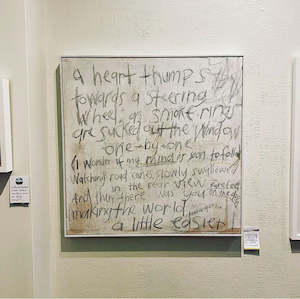 a heart thumps
towards a steering
wheel, as smoke rings
are sucked out the window
one-by-one
I wonder if my mind is soon to follow
Watching road cones slowly swallowed
in the rear view
And then there was you in the
making the world
a little easier